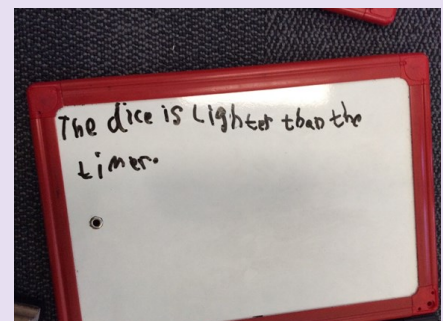 The dice is Lighter than the
timer.